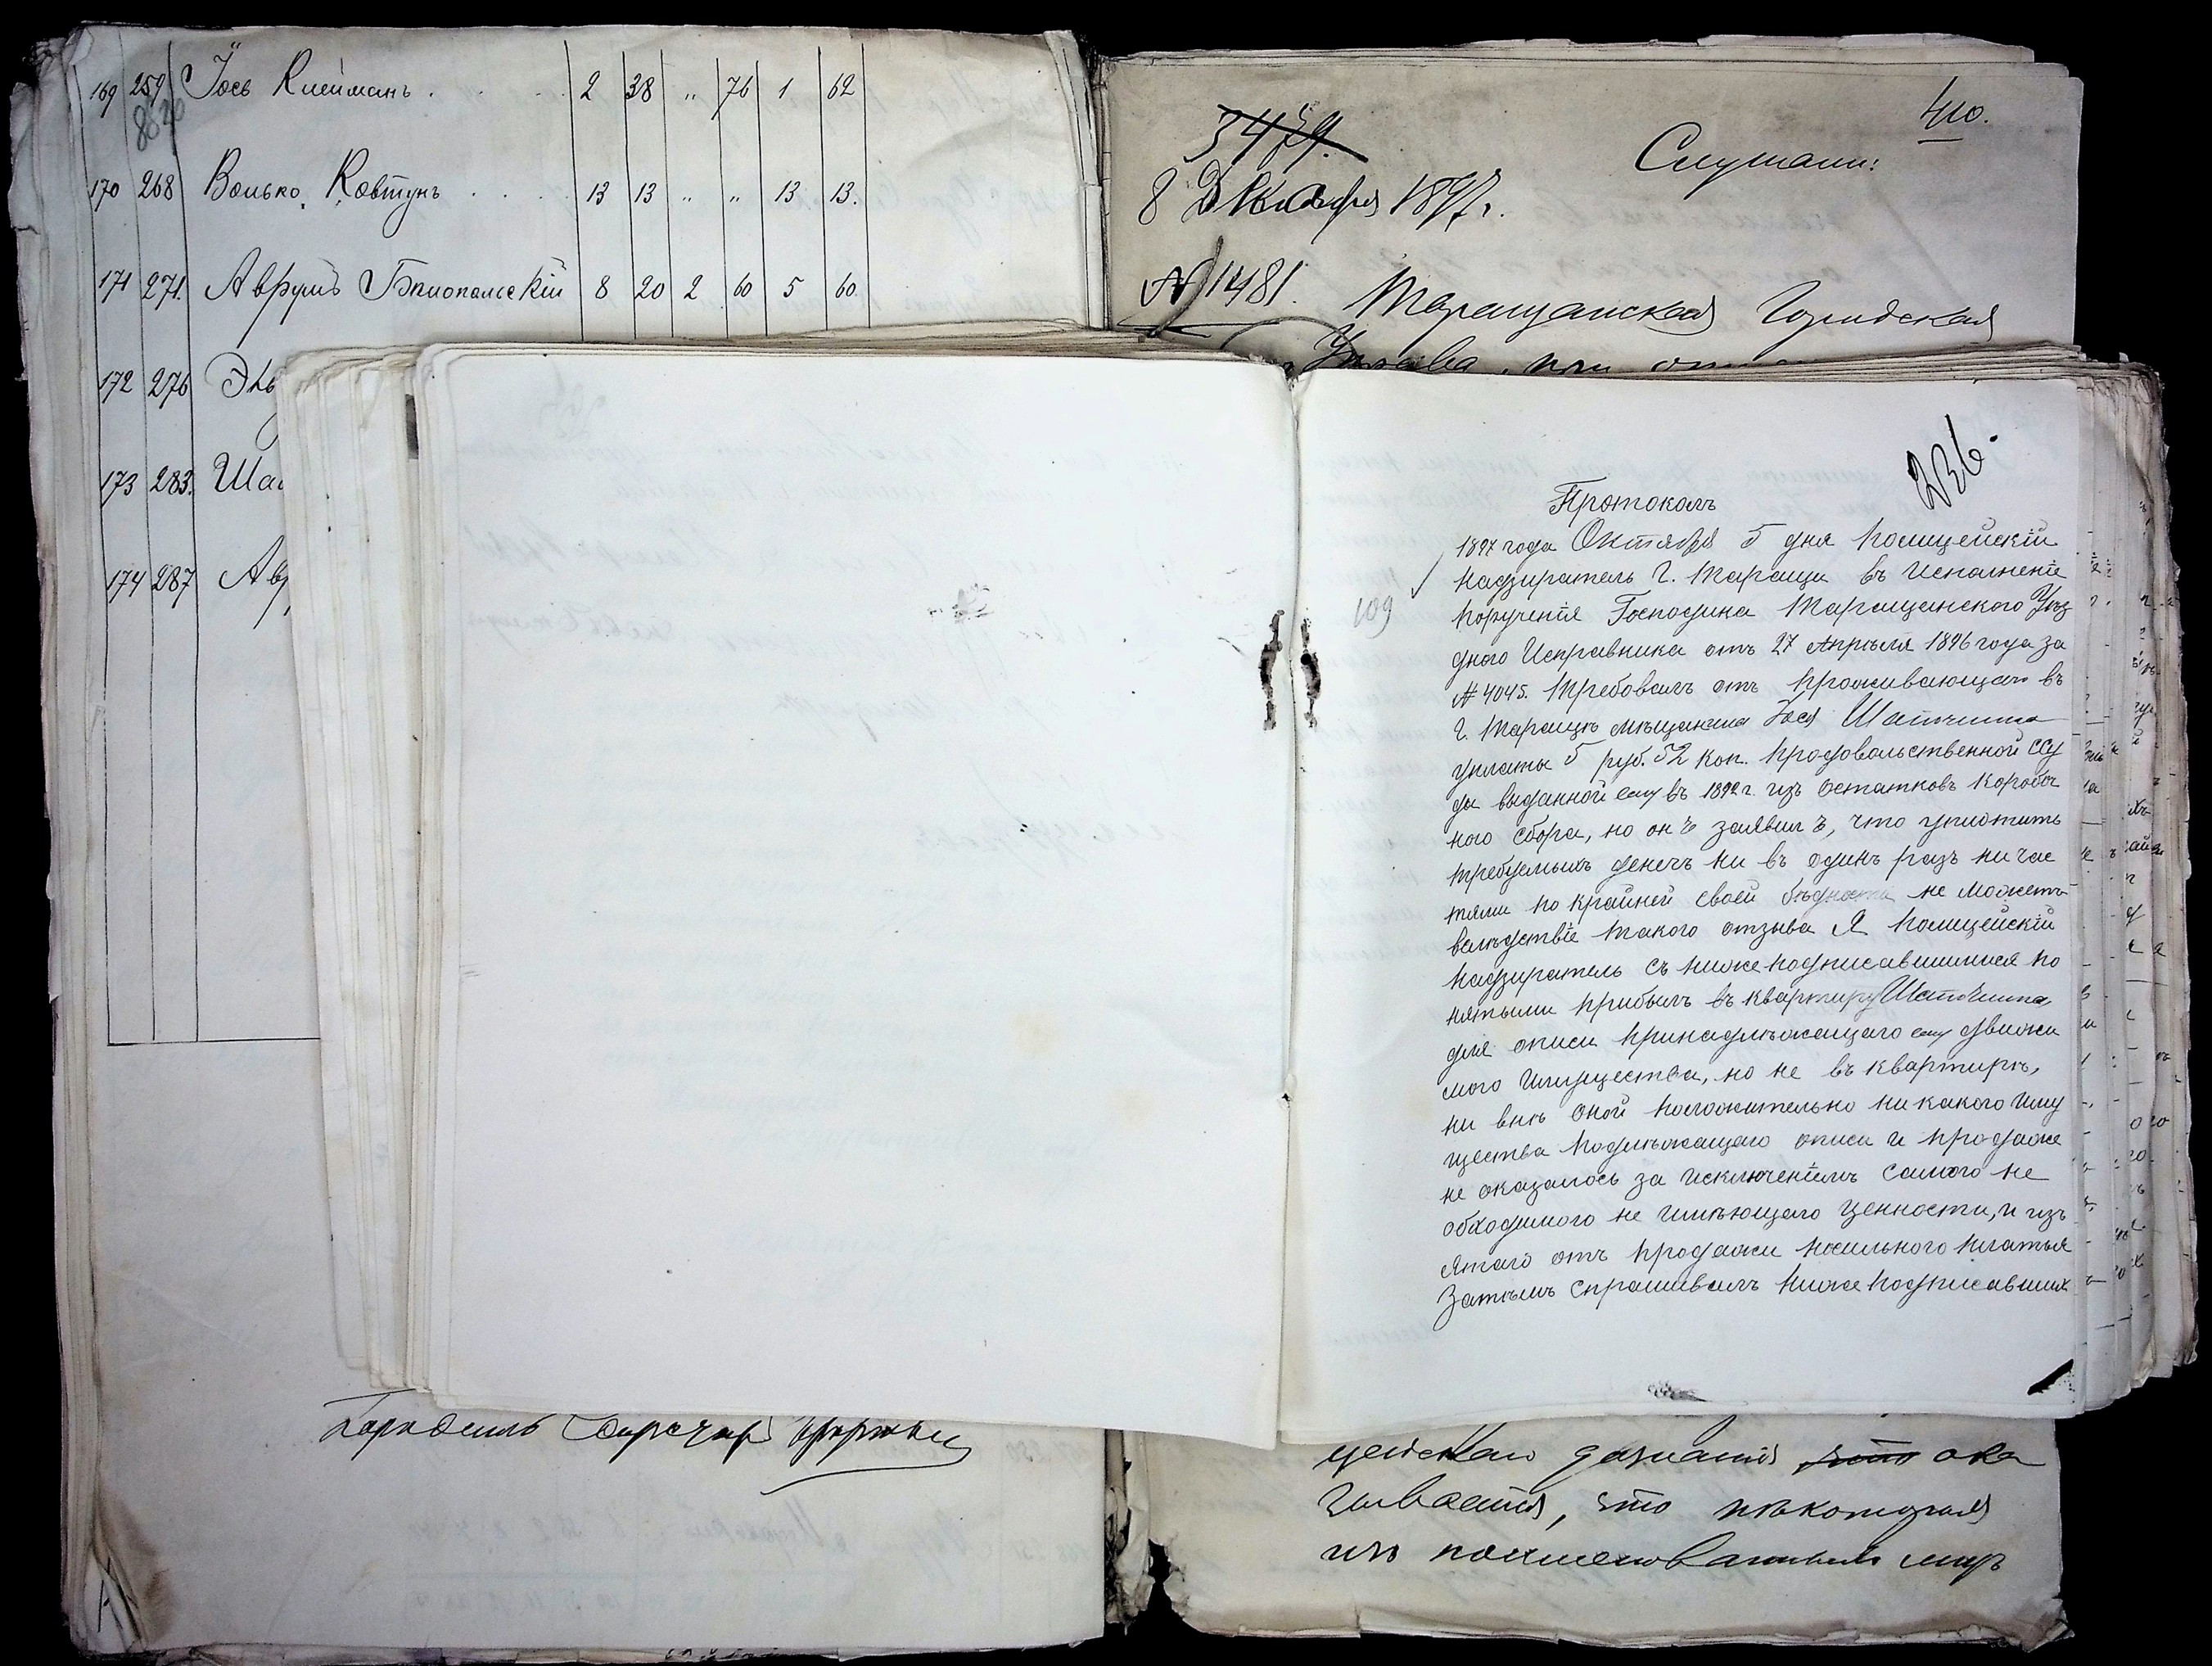 169 259 Іось Клейманъ . . . 2 38 " 76 1 62
170 268 Волько Ковтунъ . . . 13 13 " " 13 13.
171 271. Аврумъ Бѣлопольскій 8 20 2 60 5 60.
172 276
173 283.
174 287
410.
Слушали:
8 Декабря 1897 г.
№ 1481.
Таращанская Городская
Управа, при
236.
Протоколъ
1897 года Октября 5 дня Полицейскій
Надзиратель г. Таращи въ исполненіе
порученія Господина Таращанского Уѣз
дного Исправника отъ 27 Апрѣля 1896 года за
№ 4045. требовалъ отъ проживающаго въ
109
г. Таращѣ мѣщанина Іося
уплаты 5 руб. 52 коп. продовольственной ссу
ды выданной ему въ 1892 г. изъ остатковъ коробоч
ного сбора, но онъ заявилъ, что уплотить
требуемыхъ денегъ ни въ одинъ разъ ни час
тями по крайней своей бѣдности не можетъ
вслѣдствіе такого отзыва Я Полицейскій
Надзиратель съ нижеподписавшимися по
нятыми прибылъ въ квартиру
для описи принадлѣжащаго ему движи
мого имущества, но не въ квартирѣ,
ни внѣ оной положительно никакого иму
щества подлѣжащаго описи и продаже
не оказалось за исключеніемъ самого не
обходимого не имѣющаго ценности, и изъ
ятаго отъ продажи носильного платья
Затѣмъ спрашивалъ нижеподписавших
дознанія ока
зывается, что нѣкоторыя
изъ поименованныхъ лицъ